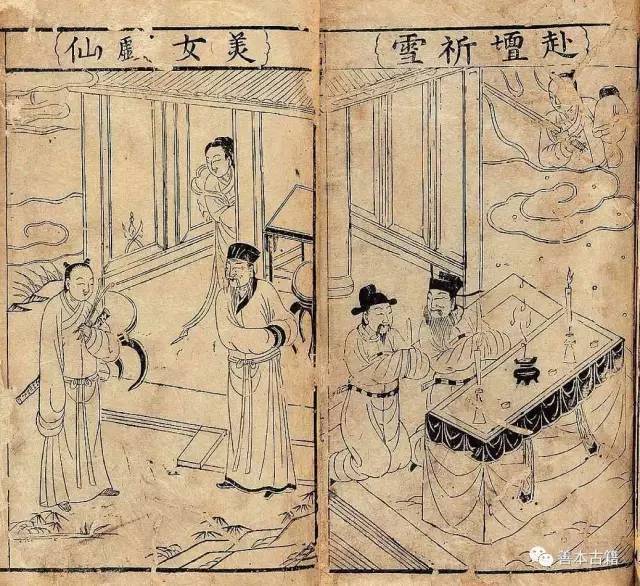 赴壇祈雪
美女虛仙
善本古籍